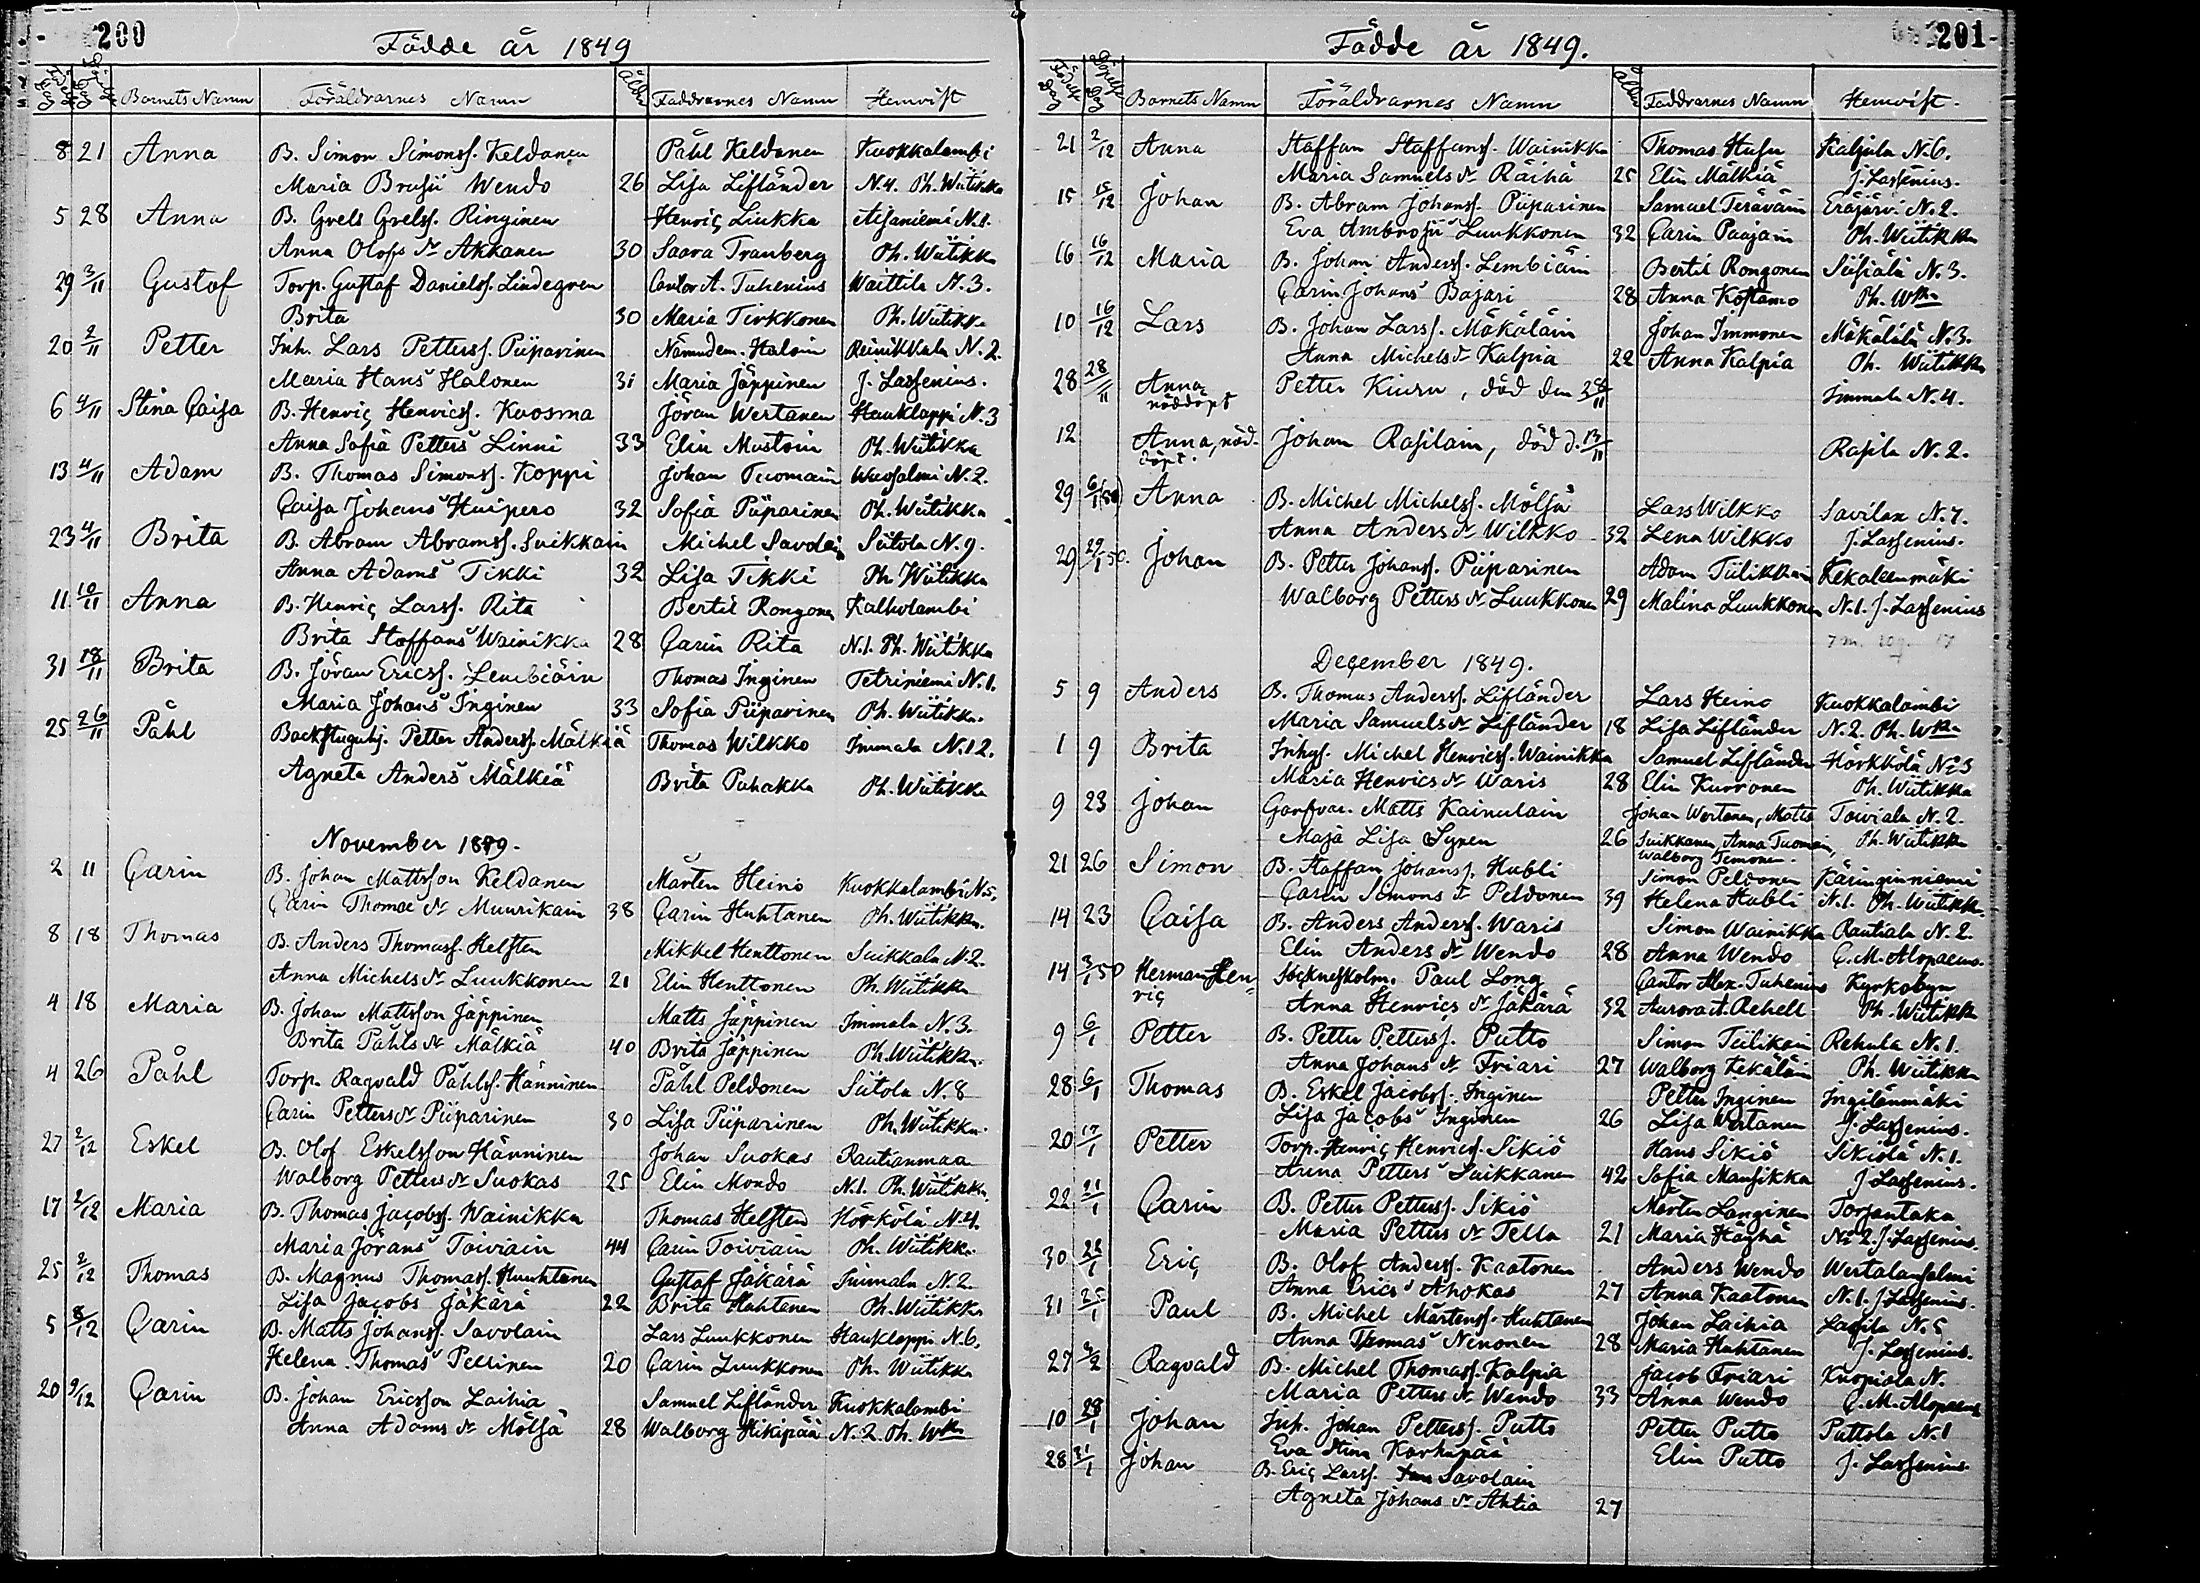 200
Födde år 1849
Barnets Namn Föräldrarnes Namn Ålder Faddrarnes Namn Hemvist
8 21 Anna B. Simon Simonss. Keldanen Påhl Keldanen Kuokkalambi
Maria Brusii Wendo 26 Lisa Lifländer N.4. Ph. Wiitikka
5 28 Anna B. Grels Grelss. Ringinen Henriç Liukka Asaniemi N.1.
Anna Olofs dr Akkanen 30 Saara Tranberg Ph. Wiitikka
29 3/11 Gustof Torp. Gustaf Danielss. Lindegren Cantor A. Tuhenius Waittila N.3.
Brita 30 Maria Tirkkonen Ph. Wiitikka
20 2/11 Petter Inh. Lars Petterss. Piiparinen Nämndem. Haloin Reinikkala N.2.
Maria Hans Halonen 31 Maria Jäppinen J. Lassenius.
6 4/11 Stina Çaisa B. Henriç Henricss. Kuosma Jöran Wertanen Haukloppi N.3
Anna Sofia Petters Linni 33 Elin Mustoin Ph. Wiitikka
13 4/11 Adam B. Thomas Simonss. Koppi Johan Tuomain Wuosalmi N.2.
Çaisa Johans Huipero 32 Sofia Piiparinen Ph. Wiitikka
23 4/11 Brita B. Abram Abramss. Suikkain Michel Savolain Siitola N.9.
Anna Adams Tikki 32 Lisa Tikki Ph. Wiitikka
11 10/11 Anna B. Henriç Larss. Rita Bertil Rongonen Kalholambi
Brita Staffans Wainikka 28 Çarin Rita N.1. Ph. Wiitikka
31 18/11 Brita B. Jöran Ericss. Lembiäin Thomas Inginen Tetriniemi N.1.
Maria Johans Inginen 33 Sofia Piiparinen Ph. Wiitikka.
25 26/11 Påhl Backstuguhj. Petter Anderss. Mälkiä Thomas Wilkko Immala N.12.
Agneta Anders Mälkiä Brita Puhakka Ph. Wiitikka
November 1849.
2 11 Çarin B. Johan Mattsson Keldanen Mårten Heino Kuokkalambi N.5.
Çarin Thomæ dr Muurikain 38 Çarin Huhtanen Ph. Wiitikka.
8 18 Thomas B. Anders Thomass. Helsten Mikkel Henttonen Suikkala N.2.
Anna Michels dr Luukkonen 21 Elin Henttonen Ph. Wiitikka
4 18 Maria B. Johan Mattsson Jäppinen Matts Jäppinen Immala N.3.
Brita Påhls dr Mälkiä 40 Brita Jäppinen Ph. Wiitikka.
4 26 Påhl Torp. Ragvald Påhlss. Hänninen Påhl Peldonen Siitola N.8
Çarin Petters dr Piiparinen 30 Lisa Piiparinen Ph. Wiitikka.
27 2/12 Eskel B. Olof Eskelsson Hänninen Johan Suokas Rautianmaa
Walborg Petters dr Suokas 25 Elin Mondo N.1. Ph. Wiitikka.
17 2/12 Maria B. Thomas Jacobss. Wainikka Thomas Helsten Hörkölä N.4.
Maria Jörans Toiviain 44 Çarin Toiviain Ph. Wiitikka.
25 2/12 Thomas B. Magnus Thomass. Huuhtanen Gustaf Jäkärä Immala N.2
Lisa Jacobs Jäkärä 22 Brita Huhtanen Ph. Wiitikka
5 8/12 Çarin B. Matts Johanss. Savolain Lars Luukkonen Haukloppi N.6.
Helena Thomas Pellinen 20 Çarin Luukkonen Ph. Wiitikka
20 9/12 Çarin B. Johan Ericsson Laihia Samuel Lifländer Kuokkalambi
Anna Adams dr Mölsä 28 Walborg Hikipää N.2. Ph. Wka
201
Födde år 1849.
Barnets Namn Föräldrarnes Namn Ålder Faddrarnes Namn Hemvist.
21 2/12 Anna Staffan Staffanss. Wainikka Thomas Husu Kaljula N.6.
Maria Samuels dr Räihä 25 Elin Mälkiä J. Lassenius.
15 15/12 Johan B. Abram Johanss. Piiparinen Samuel Teräväin Eräjärvi N.2.
Eva Ambrosii Luukkonen 32 Çarin Paajain Ph. Wiitikka
16 16/12 Maria B. Johan Anderss. Lembiäin Bertil Rongonen Siisiälä N.3.
Çarin Johans Bajari 28 Anna Kostamo Ph. Wka
10 16/12 Lars B. Johan Larss. Mäkäläin Johan Immonen Mäkälälä N.3.
Anna Michels dr Kalpia 22 Anna Kalpia Ph. Wiitikka
28 28/11 Anna, nöddöpt Petter Kiuru, död den 28/11 Immala N.4.
12 Anna, nöd-döpt. Johan Rasilain, död d. 13/11 Rasila N.2.
29 6/1(50) Anna B. Michel Michelss. Mölsä Lars Wilkko Savilax N.7.
Anna Anders dr Wilkko 32 Lena Wilkko J. Lassenius.
29 29/1 50. Johan B. Petter Johanss. Piiparinen Adam Tiilikkain Kekäleenmäki
Walborg Petters dr Luukkonen 29 Malina Luukkonen N.1. J. Lassenius
Deçember 1849.
5 9 Anders B. Thomas Anderss. Lifländer Lars Heino Kuokkalambi
Maria Samuels dr Lifländer 18 Lisa Lifländer N.2. Ph. Wka
1 9 Brita Inhys. Michel Henricss. Wainikka Samuel Lifländer Hörkkölä No 3
Maria Henrics dr Waris 28 Elin Kuronen Ph. Wiitikka
9 23 Johan Garfvar. Matts Kainulain Johan Wertanen, Matts Toiviala N.2.
Maja Lisa Synen 26 Suikkanen, Anna Tuomain, Ph. Wiitikka
Walborg Temonen.
21 26 Simon B. Staffan Johanss. Hubli Simon Peldonen Käringinniemi
Çarin Simons dr Peldonen 39 Helena Hubli N.1. Ph. Wiitikk.
14 23 Çaisa B. Anders Anderss. Waris Simon Wainikka Rautiala N.2.
Elin Anders dr Wendo 28 Anna Wendo Ç. M. Alopaeus.
14 3/1 50 Herman Hen-riç Socknesskolm. Paul Long Cantor Alex. Tuhenius Kyrkobyn
Anna Henrics dr Jäkärä 32 Aurora A. Rehell Ph. Wiitikka
9 6/1 Petter B. Petter Petterss. Putto Simon Tiilikain Rehula N.1.
Anna Johans dr Friari 27 Walborg Kekäläin Ph. Wiitikka
28 6/1 Thomas B. Eskel Jacobss. Inginen Petter Inginen Ingilänmäki
Lisa Jaçobs Inginen 26 Lisa Wertanen J. Lassenius.
20 17/1 Petter Torp. Henriç Henricss. Sikiö Hans Sikiö Sikiölä N.1.
Anna Petters Suikkanen 42 Sofia Mansikka J. Lassenius.
22 21/1 Çarin B. Petter Petterss. Sikiö Mårten Langinen Torsantaka
Maria Petters dr Tella 21 Maria Häyhä No 2. J. Lassenius.
30 22/1 Eriç B. Olof Anderss. Kaatonen Anders Wendo Wertalansalmi
Anna Erics Ahokas 27 Anna Kaatonen N.1. J. Lassenius.
31 25/1 Paul B. Michel Mårtenss. Huhtanen Johan Laihia Lasila N.5
Anna Thomas Nenonen 28 Maria Huhtanen J. Lassenius.
27 2/2 Ragvald B. Michel Thomass. Kalpia Jacob Friari Kuopiala N.
Maria Petters dr Wendo 33 Anna Wendo Ç. M. Alopaeus
10 28/1 Johan Inh. Johan Petterss. Putto Petter Putto Puttola N.1
Eva Stina Karhupää Elin Putto J. Lassenius.
28 31/1 Johan B. Eriç Larss. Savolain
Agneta Johans dr Ahtia 27